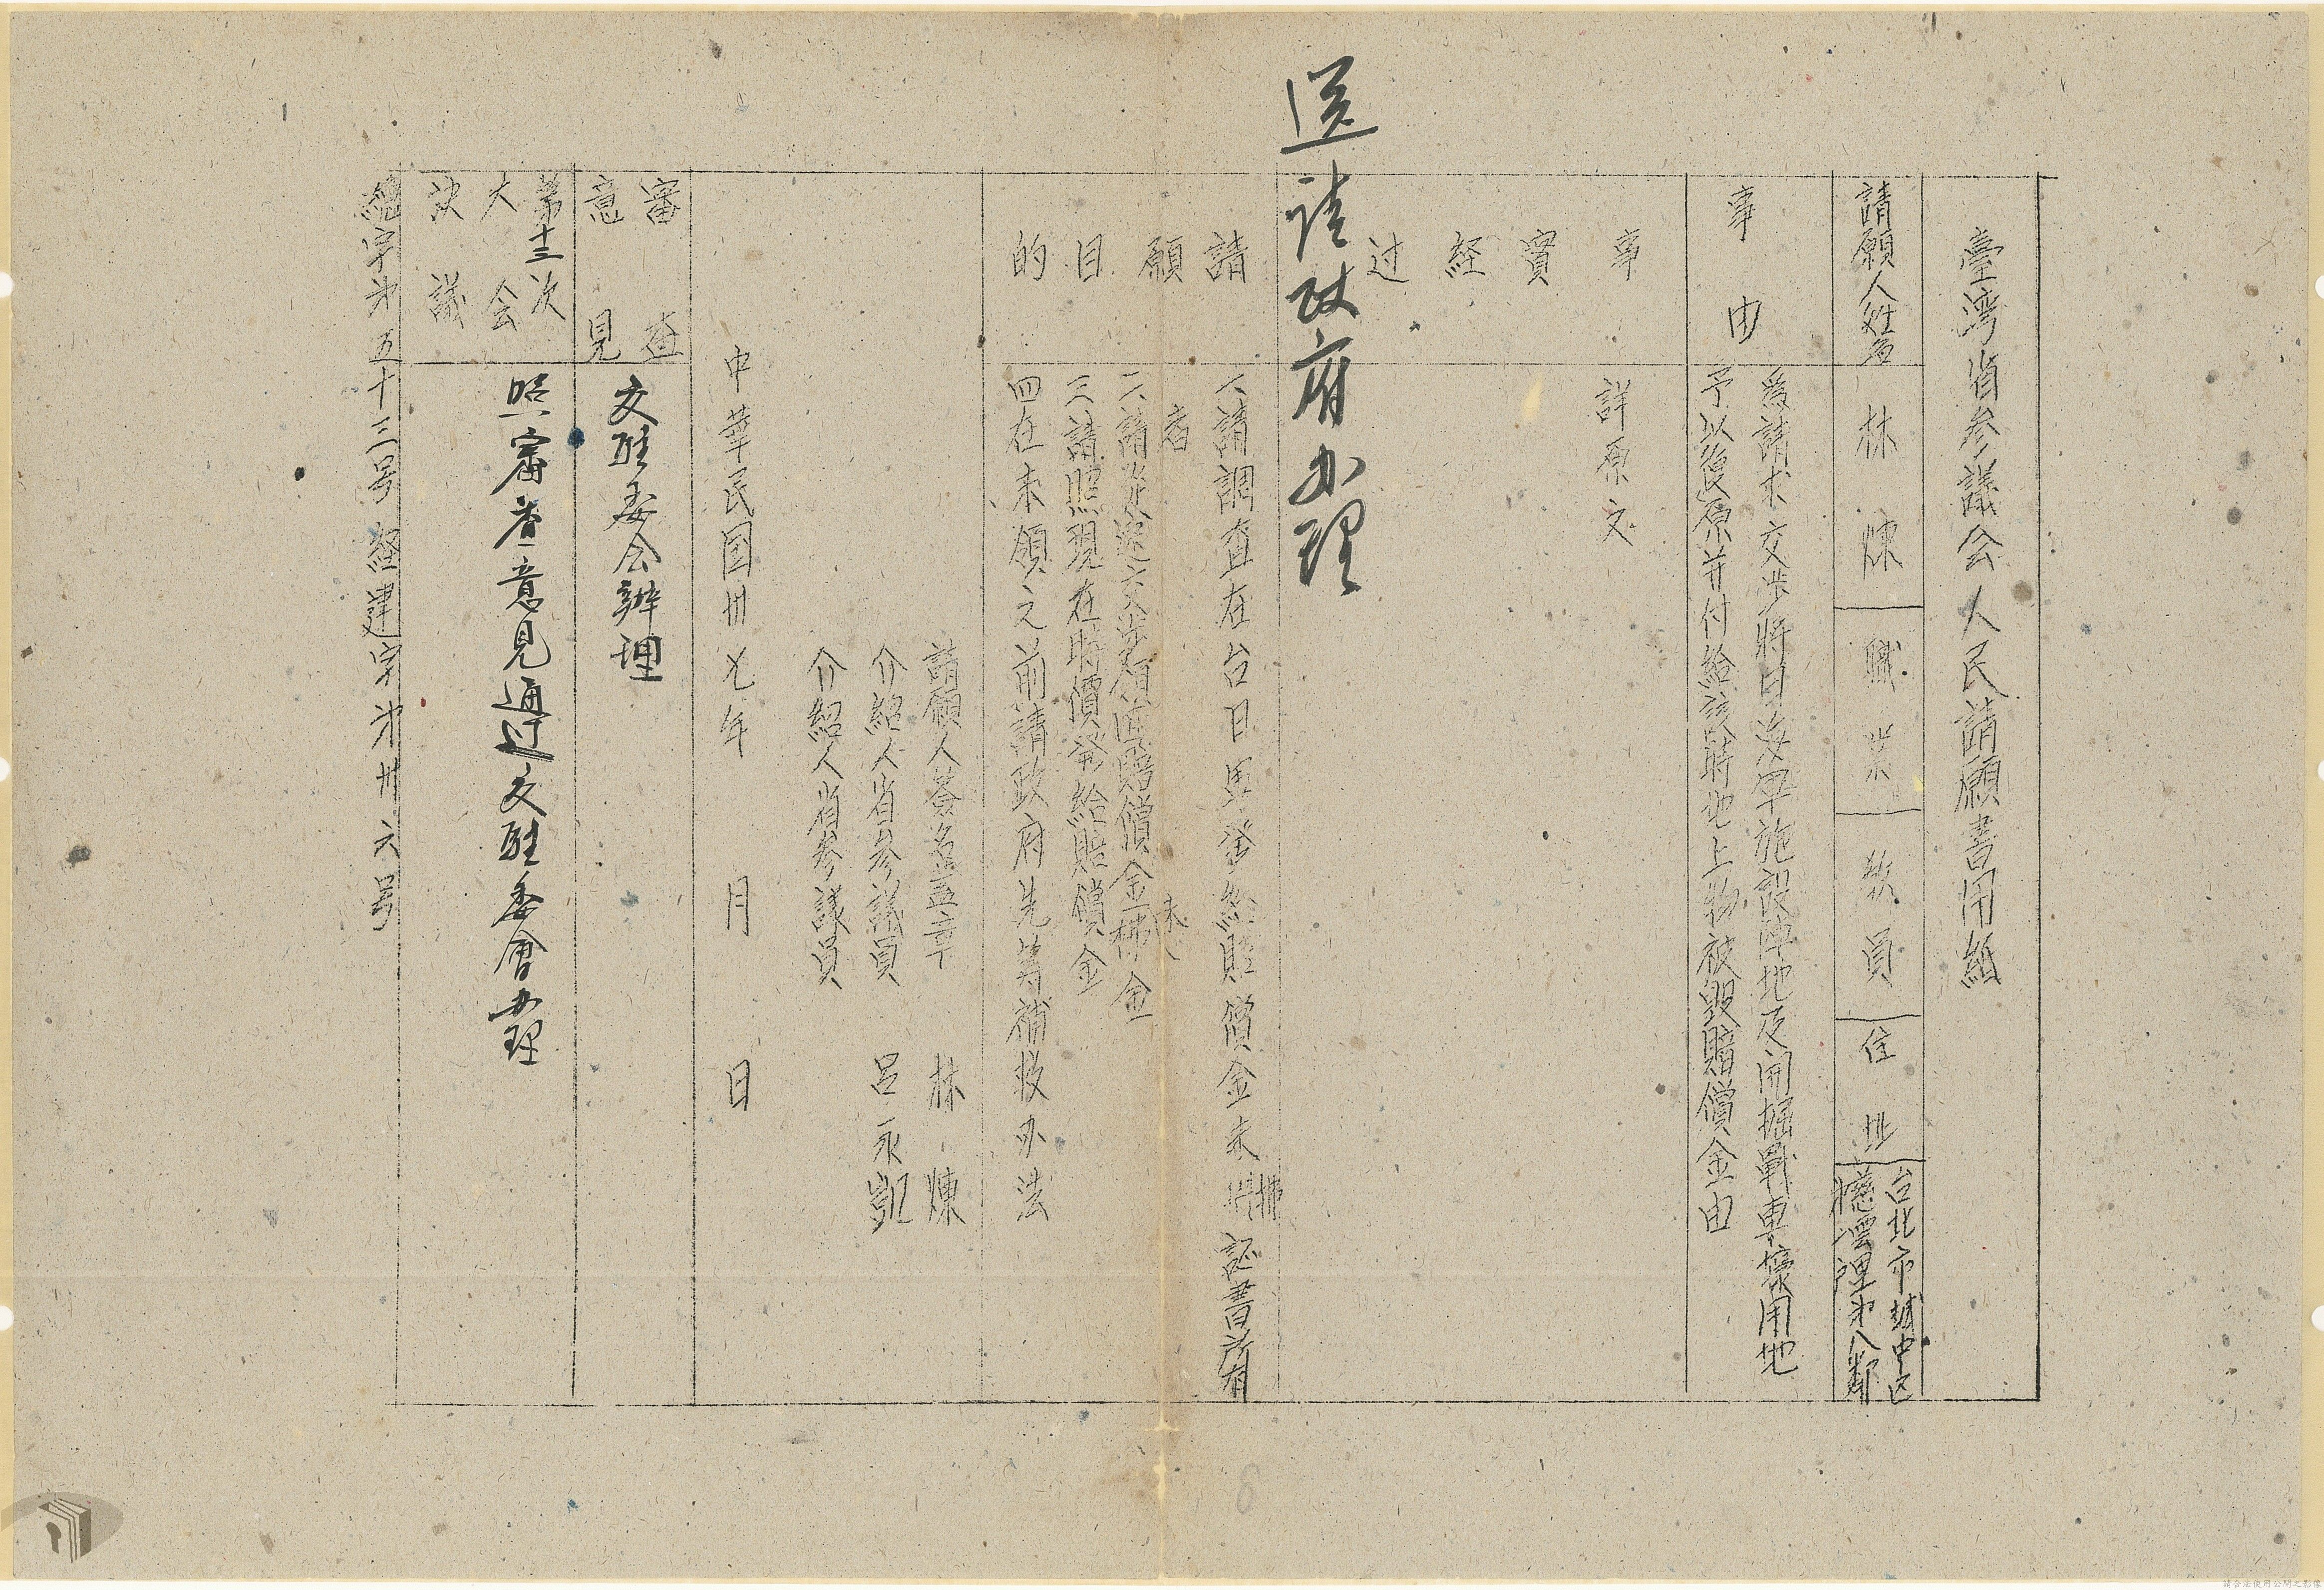 臺灣省参議会人民請願書用紙
請願人姓名
林煉
職業
教員
住址
台北市城中区
慈雲里第八鄰
事由
爲請求交涉將日海軍施設陣地及開掘戰車壕用地
予以復原并付給該時地上物被毀賠償金由
事實経过
詳原文
送請政府办理
請願目的
一、請調查在台日軍發給賠償金未拂証書所有
者
二、請從速交涉領值賠償金未拂金
三、請照現在時價發給賠償金
四、在未領之前請政府先筹補救办法
請願人簽名盖章 林煉
介紹人省参議員 呂永凱
介紹人省参議員
中華民国卅七年 月 日
審查意見
交駐委会辦理
第十三次大会決議
照審查意見通过交駐委會办理
總字第五十三号 経建字第卅六号
6